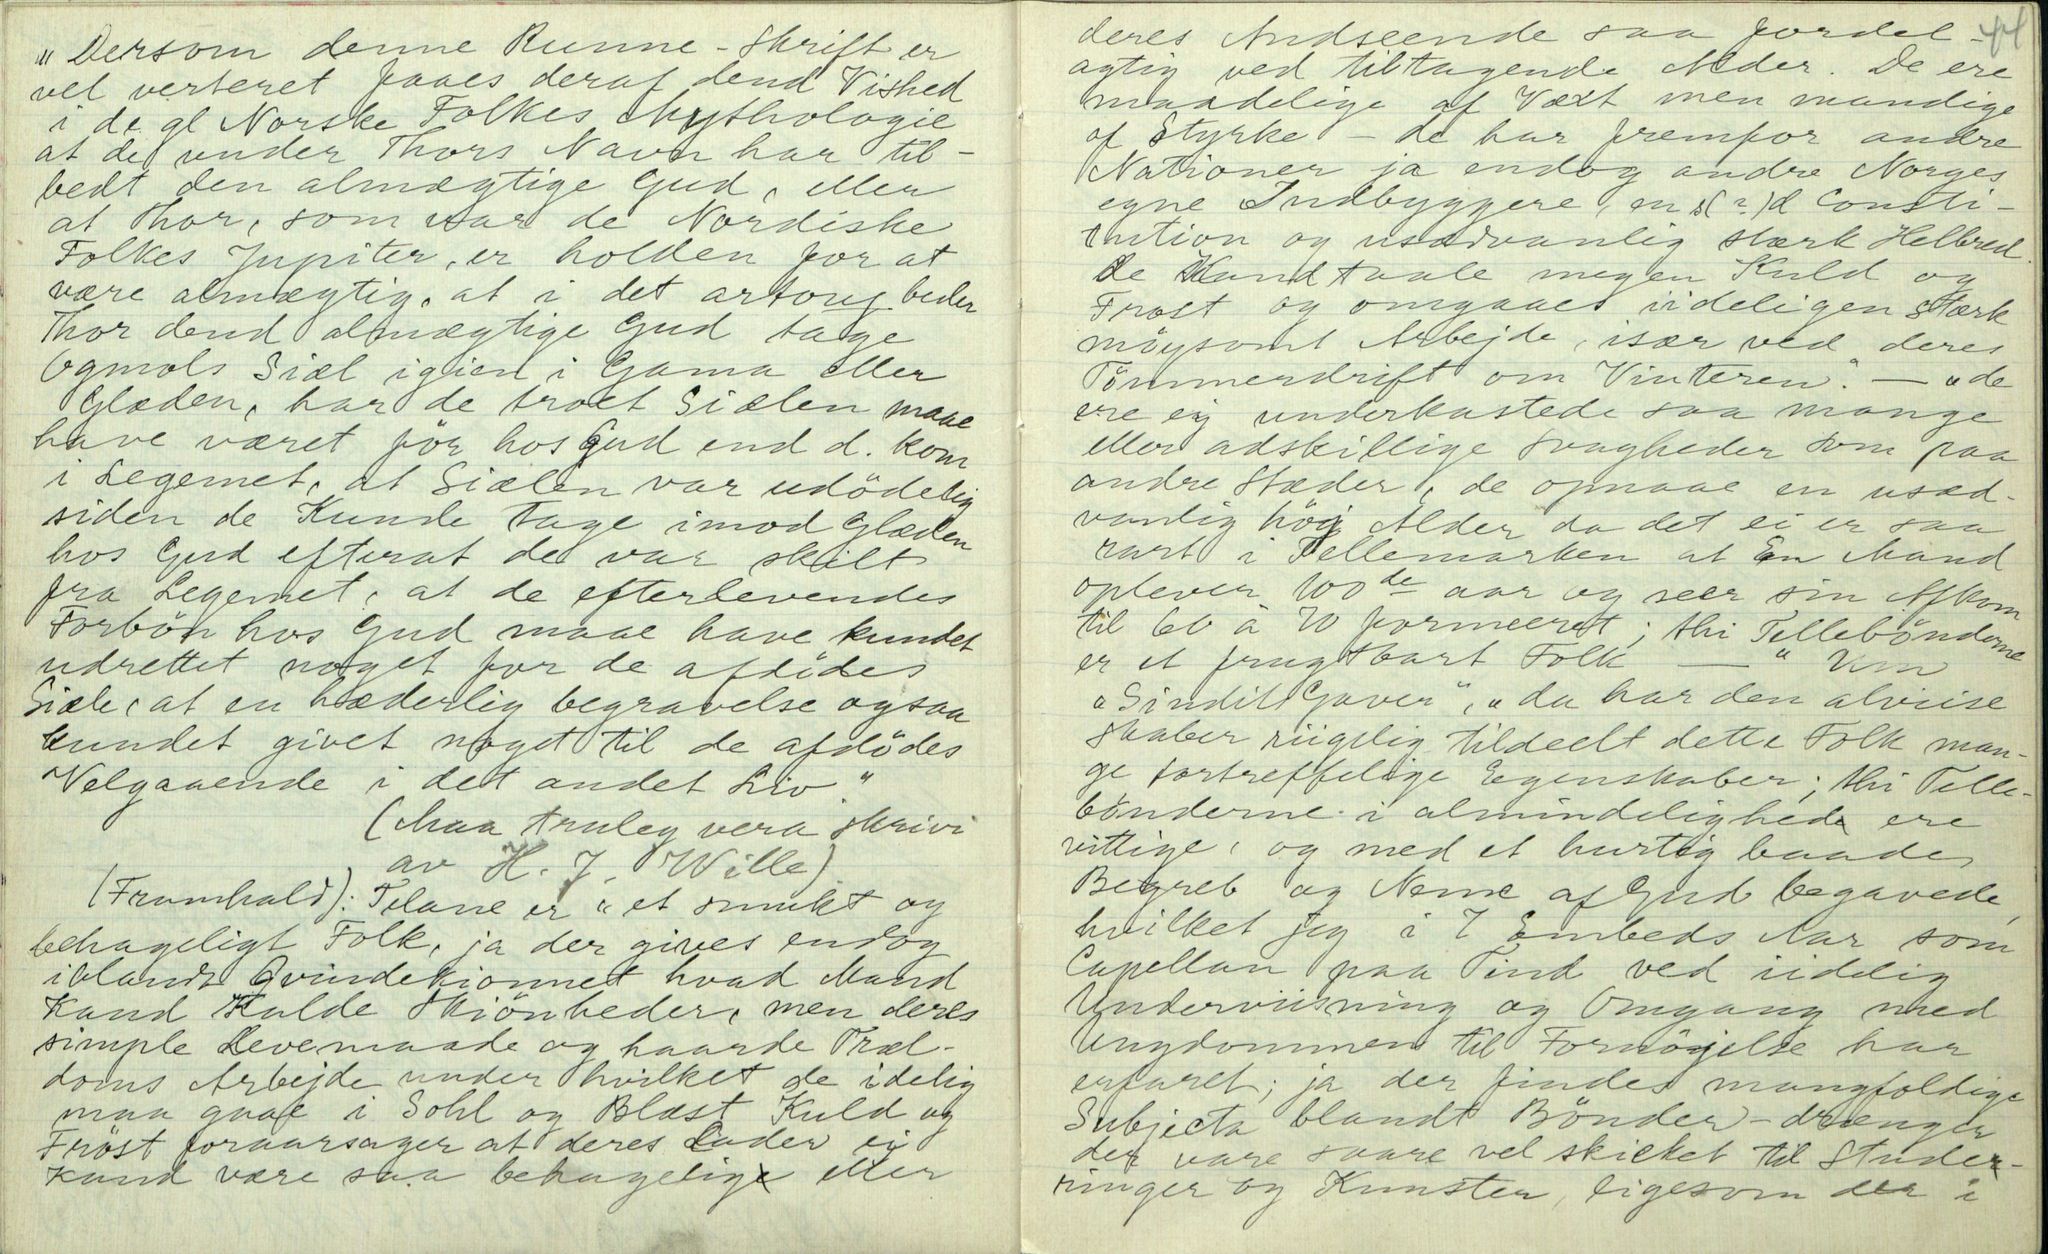 "Dersom denne Runne-Skrift er
vel verteret faaes deraf dend Vished
i de gl Norske Folkes Mythologie
at de under Thors Navn har til-
bedt den almægtige Gud, eller
at Thor, som var de Nordiske
Folkes Jupiter, er holden for at
være almægtig, at i det artong beder
Thor dend almægtige Gud tage
Ogmols Siæl igien i Gama eller
Glæden, har de troet Siælen maae
have været för hos Gud end d. kom
i Legemet, at Siælen var udödelig
siden de Kunde tage imod Glæden
hos Gud efterat de var skilt
fra Legemet, at de efterlevendes
Forbön hos Gud maae have kundet
udrettet noget for de afdödes
Siæle, at en hæderlig begravelse ogsaa
kundet givet noget til de afdödes
Velgaaende i det andet Liv."
(Maa truleg vera skrivi
av H. J. Wille)
(Frumhald): Telane er "et smukt og
behageligt Folk, ja der gives endog
iblandt Qvindekionnet hvad Mand
Kand Kalde Skiönheder, men deres
simple Levemaade og haarde Træl-
doms Arbejde under hvilket de idelig
maa gaae i Sohl og Blæst Kuld og
Fröst foraarsager at deres Lader ei
Kand være saa behagelig eller
44
deres Andseende saa fordel-
agtig ved tiltagende Alder. De ere
maadelige af Vœxt men mandige
af Styrke - de har fremfor andre
Nationer ja endog andre Norges
egne Indbyggere, en s(?)d Consti-
tution og usædvanlig stærk Helbred.
De Kand taale megen Kuld og
Frost og omgaaes iideligen stærk
möysomt Arbejde, især ved deres
Tömmerdrift om Vinteren". - "de
ere ej underkastede saa mange
eller adskillige svagheder som paa
andre Stæder, de opnaae en usæd-
vanlig höj Alder da det ei er saa
rart i Tellemarken at En Mand
oplever 100de aar og seer sin Afkom
til 60 à 70 formeeret; thi Tellebönderne
er et frugtbart Folk - " Um
"Sindits Gaver", "da har den alviise
Skaber riigelig tildeelt dette Folk man-
ge fortreffelige Egenskaber; thi Telle-
bönderne i almindelighed ere
vittige, og med et hurtig baade
Begreb og Neme af Gud begavede,
hvilket jeg i 7 Embeds Aar som
Capellan paa Tind ved iidelig
Underviisning og Omgang med
Ungdommen til Fornöjelse har
erfaret; ja der findes mangfoldige
Subjecta blandt Bönder-drenger
der vare saare vel skikket til Stude-
ringer og Kunster, ligesom der i